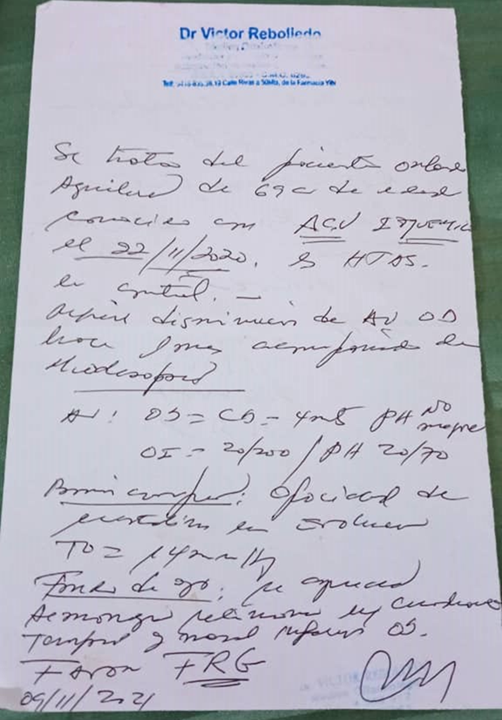 Dr Victor Rebolledo
Se trata del paciente
Aguilera de 69a de edad
conocido con ACV ISQUEMICO
el 22/11/2020. Es HTAS.
en control. —
Refiere disminución de AV OD
hace 1 mes acompañada de
Miodesopsias
AV: OD = CD - 4mts PH NO mejora
OI = 20/200 / PH 20/70
Biomicroscopia: Opacidad de
cristalino en
TO = 14mmHg
Fondo de ojo: se aprecia
Hemorragia retiniana en cuadrante
Temporal y nasal inferior OD.
Favor FRG
09/11/2021